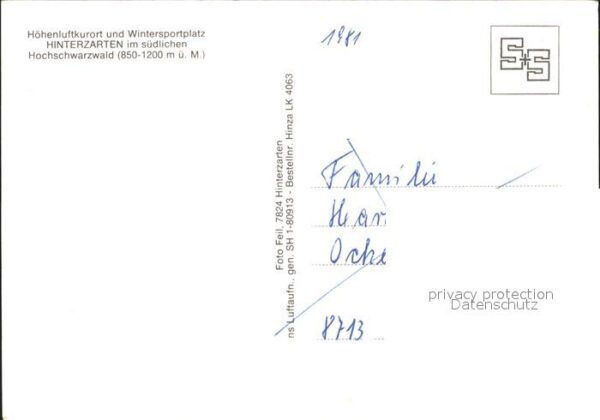 Höhenluftkurort und Wintersportplatz
HINTERZARTEN im südlichen
Hochschwarzwald (850-1200 m ü. M.)
Foto Feil, 7824 Hinterzarten
ns Luftaufn., gen. SH 1-80913 - Bestellnr. Hinza LK 4063
1981
S+S
Familie
Har
Oche
8713
privacy protection
Datenschutz